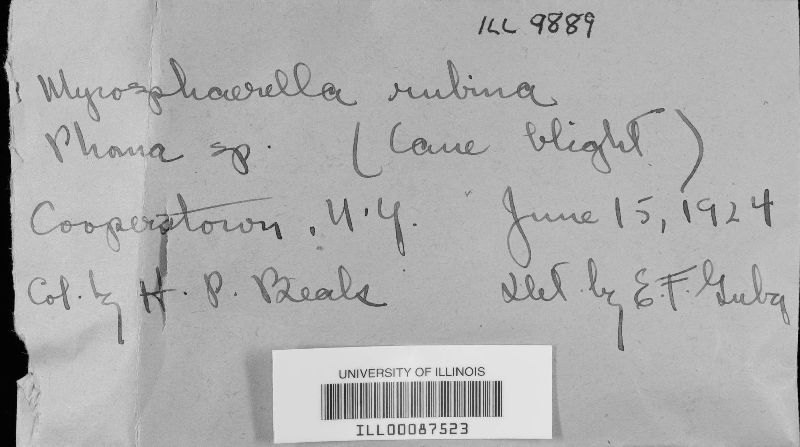 ILL 9889
Mycosphaerella rubina
Phoma sp. (Cane blight)
Cooperstown, N.Y. June 15, 1924
Col. by H. P. Beals Det. by E. F. Guba
UNIVERSITY OF ILLINOIS
ILL00087523